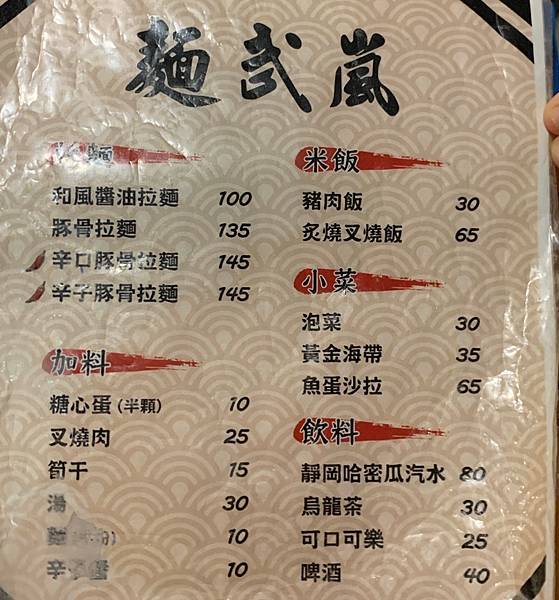 麵武嵐
拉麵
和風醬油拉麵 100
豚骨拉麵 135
辛口豚骨拉麵 145
辛子豚骨拉麵 145
加料
糖心蛋(半顆) 10
叉燒肉 25
筍干 15
湯 30
10
辛子醬 10
米飯
豬肉飯 30
炙燒叉燒飯 65
小菜
泡菜 30
黃金海帶 35
魚蛋沙拉 65
飲料
靜岡哈密瓜汽水 80
烏龍茶 30
可口可樂 25
啤酒 40